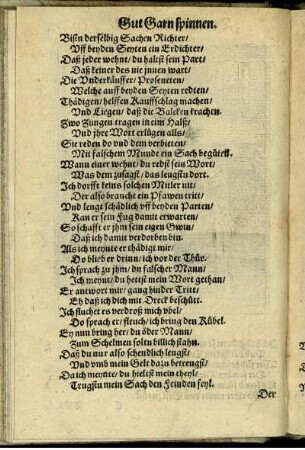 Gut Garn spinnen.
Bistn derselbig Sachen Richter/
Vff beyden Seyten ein Erdichter/
Daß jeder wehnt/ du haltst sein Part/
Daß keiner des nie jnnen wart/
Die Vnderkäuffer/ Profeneten/
Welche auff beyden Seyten redten/
Thädigen/ helffen Kauffschlag machen/
Vnd Liegen/ daß die Balcken krachen.
Zwo Zungen tragen in em Halß/
Vnd jhre Wort erlügen alls/
Sie reden do vnd dem verbitten/
Mit falschem Mundt ein Sach begütett.
Wann einer wehnt/ du redst sein Wort/
Was dem zusagst/ das leugstu dort.
Ich dorfft keins solchen Mitler nit/
Der also braucht ein Pfawen tritt/
Vnd leugt schädlich vff beyden Parten/
Kan er sein Fug damit erwarten/
So schafft er jhm sein eigen Gwin/
Daß ich damit verdorben bin.
Als ich meynte er thäts mir/
Do blieb er drinn/ ich vor der Thür.
Ich sprach zu jhm/ du falscher Mann/
Ich meynt/ du hettst mein Wort gethan/
Er antwort mir/ gang hinder Tritt/
Ey daß ich dich mit Dreck beschütt.
Ich fluchet es verdroß mich vbel/
Do sprach er/ fleuch/ ich bring den Kübel.
Ey nun bring her/ du öder Mann/
Zum Schelmen soltu billich stahn.
Daß du nur also schendlich leugst/
Vnd vmb mein Gelt dazu betreugst/
Da ich meynte/ du hieltst mein theyl/
Trugstu mein Sach den Feinden feyl.
Der